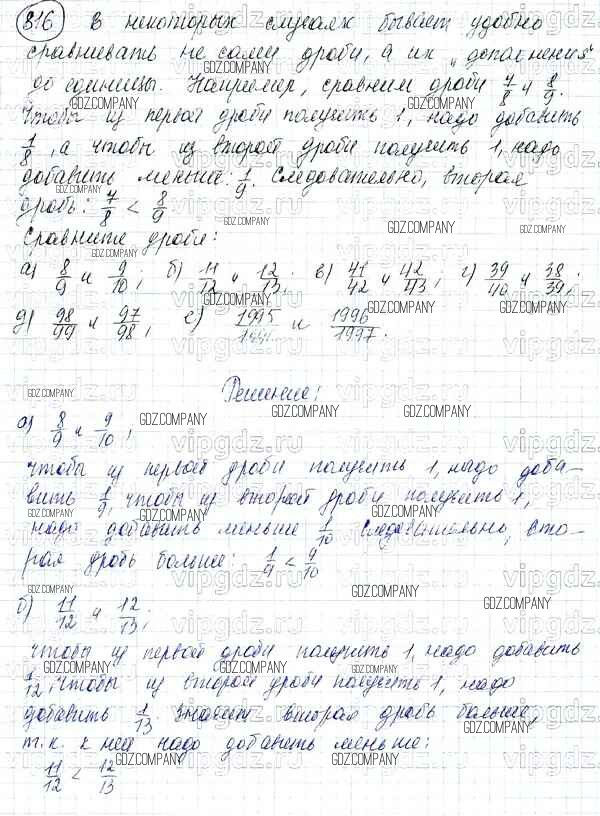 816 В некоторых случаях бывает удобно
сравнивать не сами дроби, а их „дополнения"
до единицы. Например, сравним дроби 7/8 и 8/9.
Чтобы из первой дроби получить 1, надо добавить
1/8, а чтобы из второй дроби получить 1, надо
добавить меньше: 1/9. Следовательно, вторая
дробь: 7/8 < 8/9.
Сравните дроби:
а) 8/9 и 9/10; б) 11/12 и 12/13; в) 41/42 и 42/43; г) 39/40 и 38/39;
д) 98/99 и 97/98; е) 1995/ и 1996/1997.
Решение:
а) 8/9 и 9/10;
чтобы из первой дроби получить 1, надо доба-
вить 1/9, чтобы из второй дроби получить 1,
надо добавить меньше 1/10 следовательно, вто-
рая дробь больше: 1/9 < 9/10
б) 11/12 и 12/13;
Чтобы из первой дроби получить 1, надо добавить
1/12, чтобы из второй дроби получить 1, надо
добавить 1/13. Значит вторая дробь больше,
т.к. к ней надо добавить меньше:
11/12 < 12/13
vipgdz.ru
GDZ.COMPANY